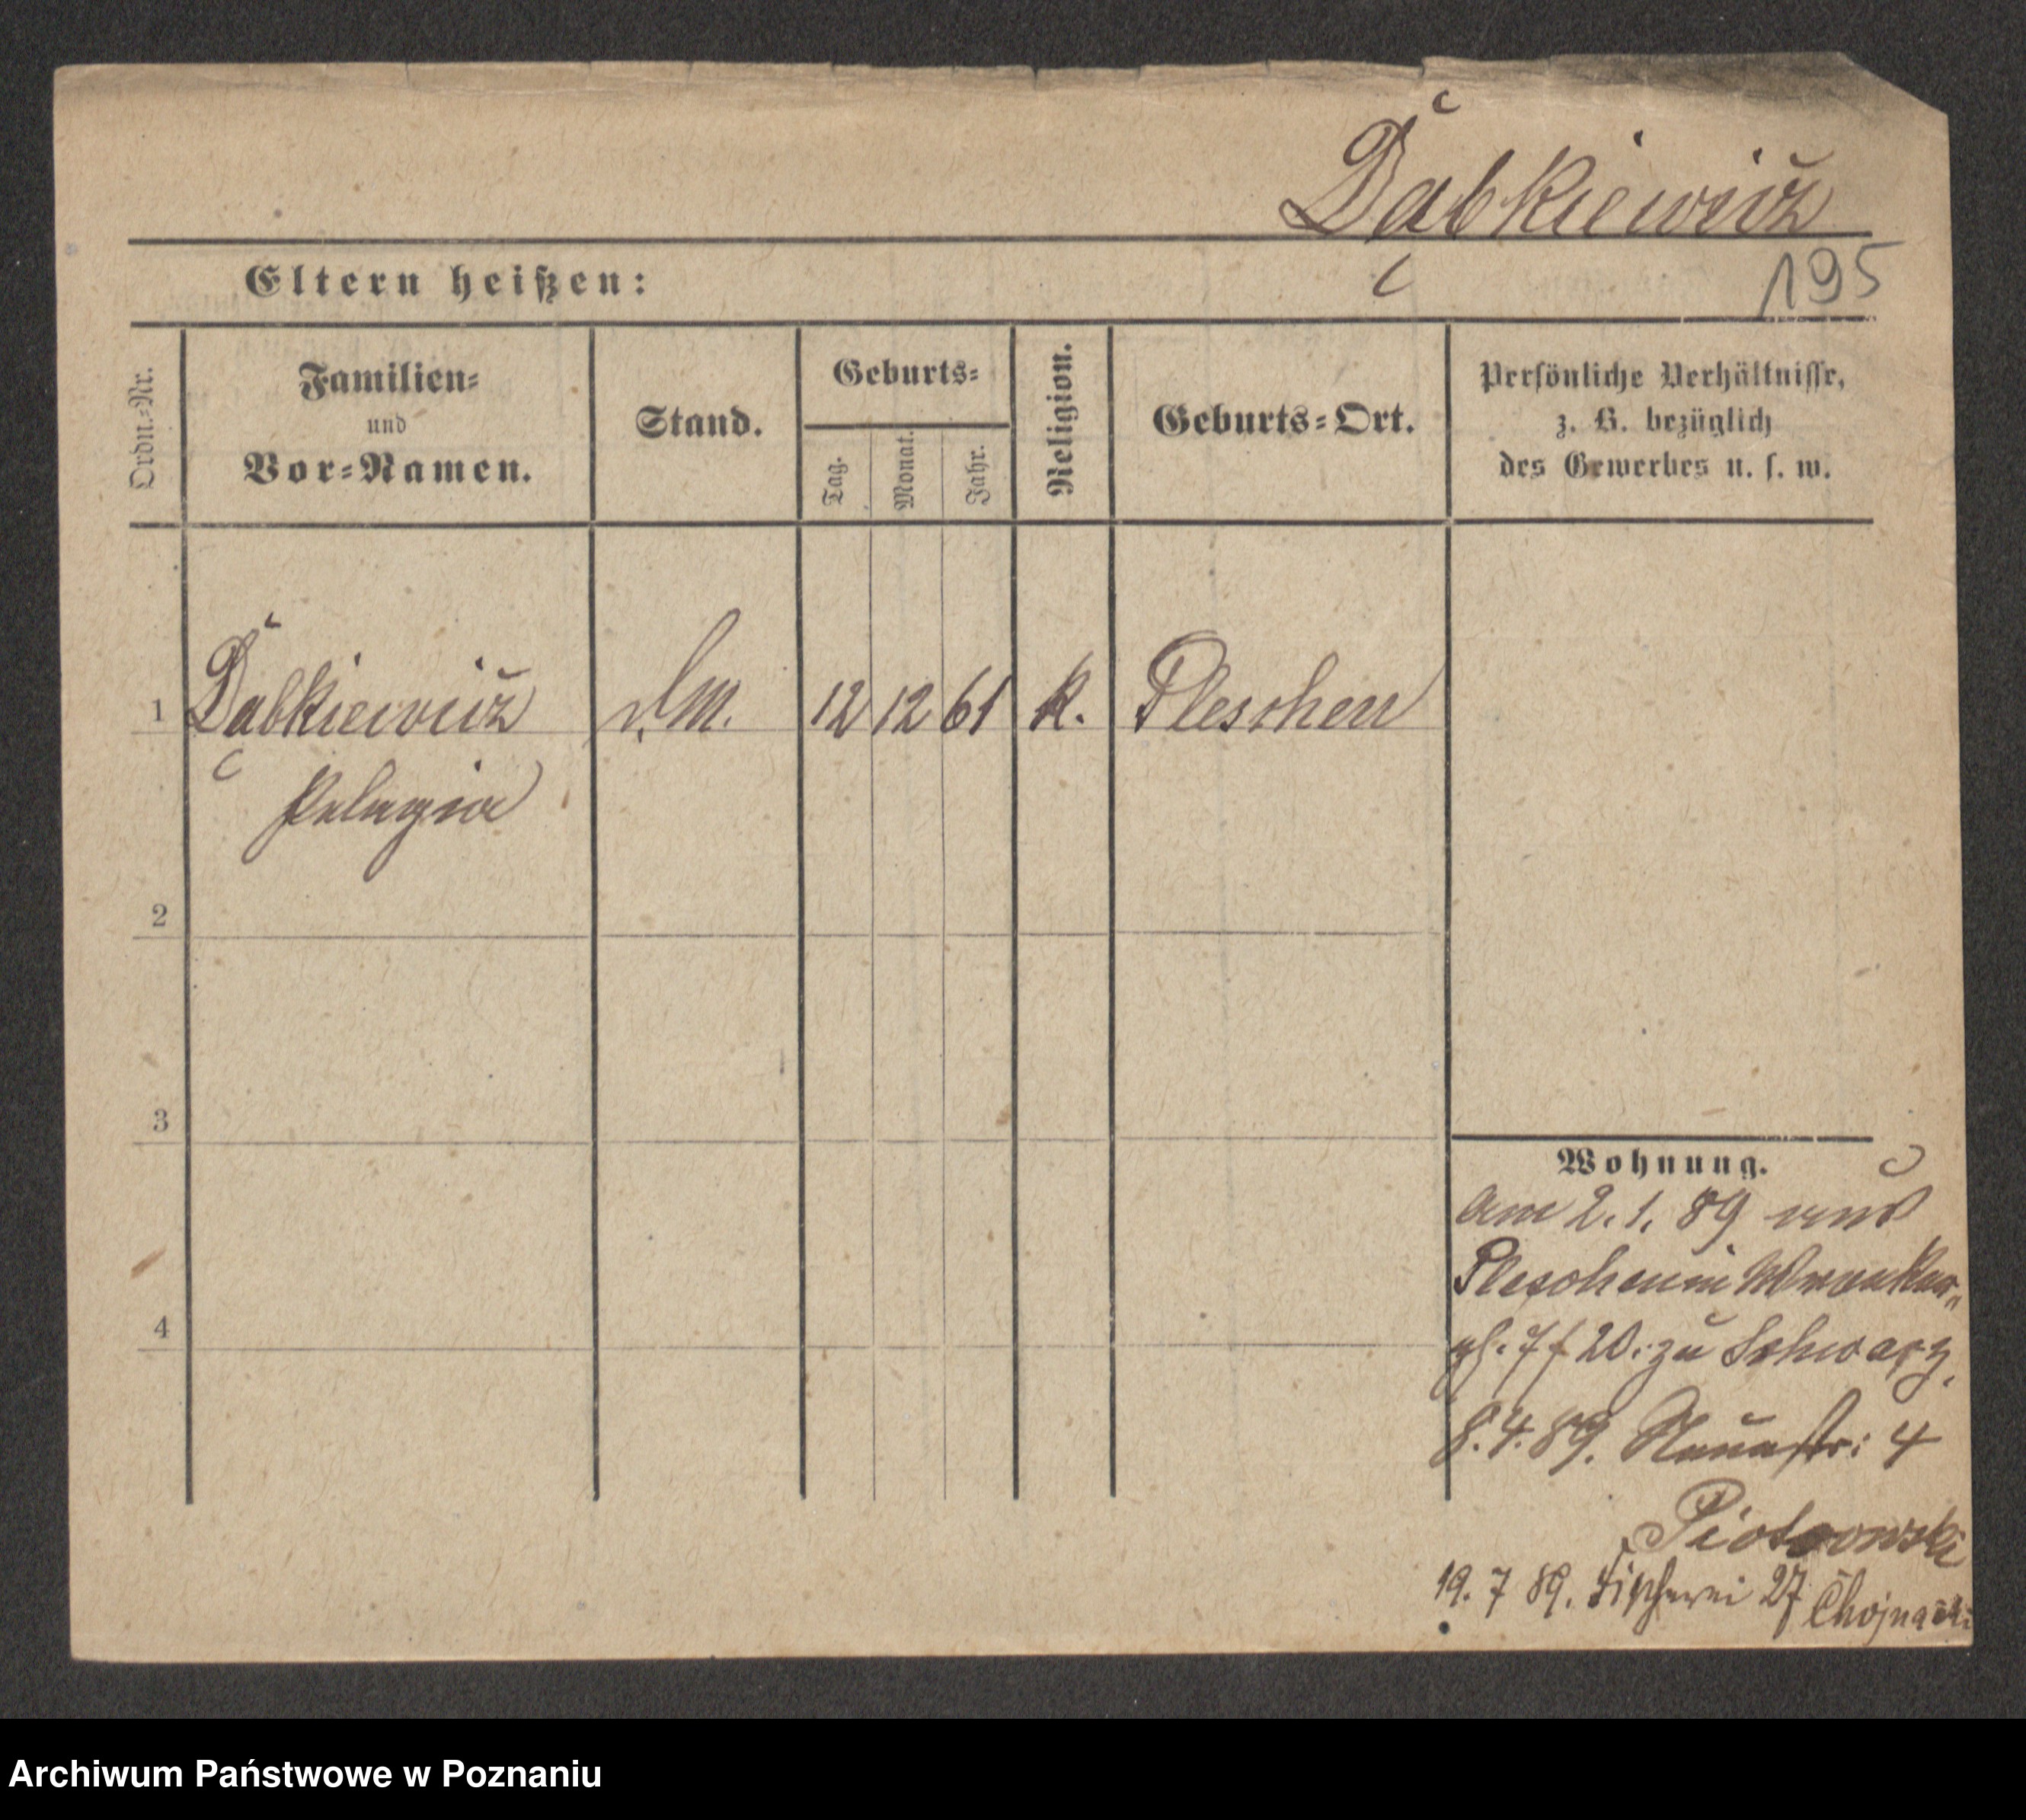 Dąbkiewicz
195
Eltern heißen:
Ordn.-Nr.
Familien-
und
Vor-Namen.
Stand.
Geburts-
Tag.
Monat.
Jahr.
Religion.
Geburts-Ort.
Persönliche Verhältnisse,
z. B. bezüglich
des Gewerbes u. s. w.
1 Dąbkiewicz 12 12 61 k. Pleschen
Pelagia
2
3
4
Wohnung.
am 2. 1. 89 aus
Pleschen in
20. zu Schwarz,
8. 4. 89. Neuestr: 4
Piotrowski
19. 7 89. Fischerei 27 Chojnacki
Archiwum Państwowe w Poznaniu